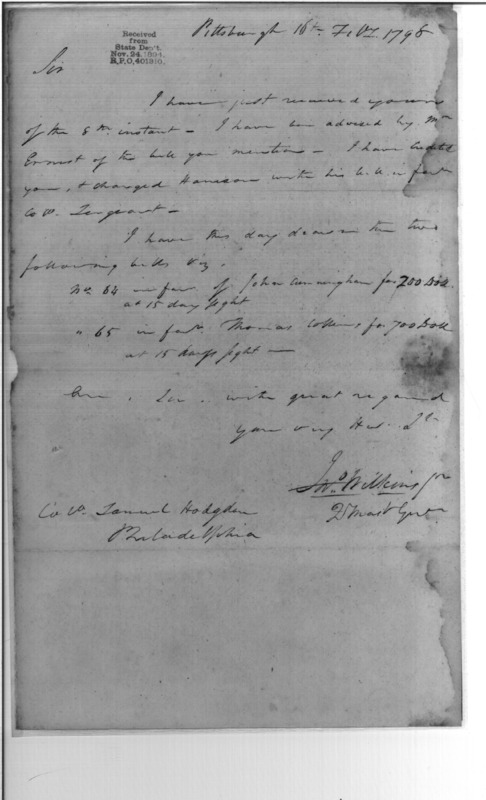 Received
from
State Dep't.
Nov. 24, 1894.
R.P.O, 401910.
Pittsburgh 16th Feby 1798
Sir
I have just received yours
of the 8th instant - I have been advised by Mr
Ernest of the bill you mention - I have
you, & charged Harrison with his in favr
Sergeant -
I have this day drawn the two
following bills Viz.
No. 64 in favr of John Cunningham for 200 Doll
at 15 days sight
" 65 in favr. Thomas Collins for 700 Doll
at 15 days sight -
Sir. with great regard
your very Hue. St
Jno Wilkins Jr
Qr Mastr Genl
Samuel Hodgdon
Philadelphia